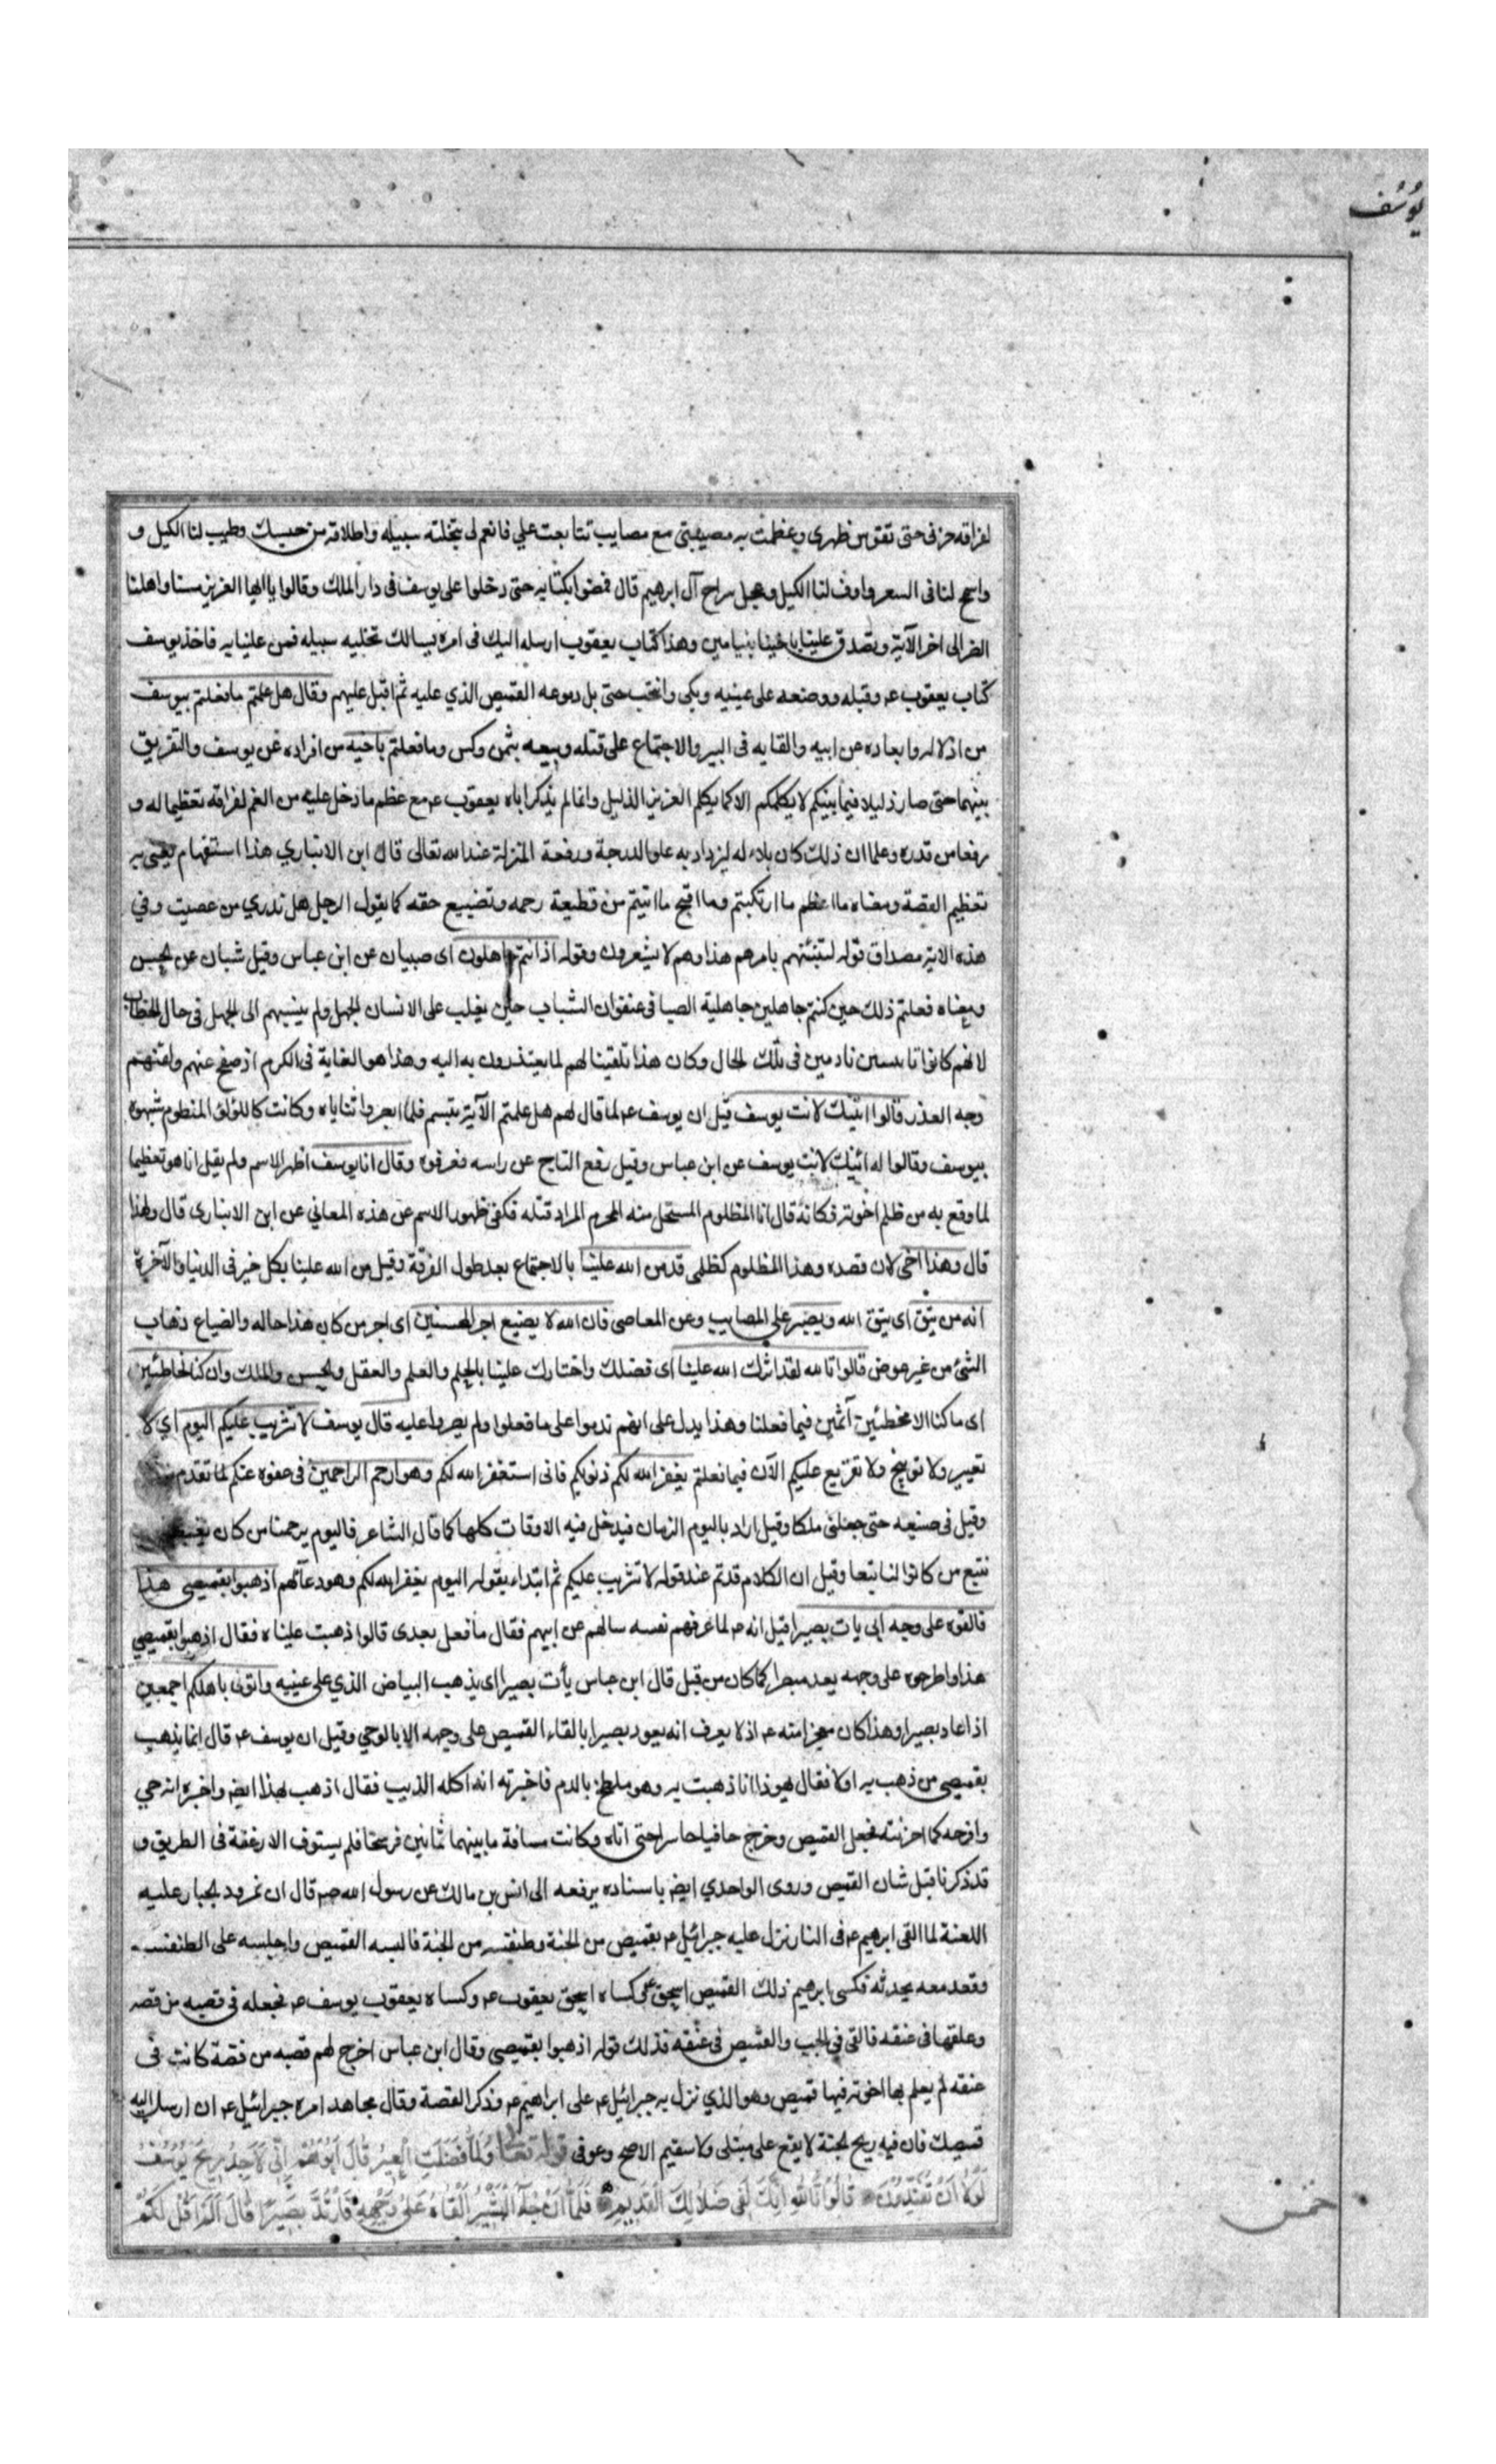 يوسف
لفراقه حزنى حتى تقوس ظهرى وعظمت به مصيبتى مع مصايب تتابعت علي فانعم لى بتخلته سبيله واطلاقه من حبسك وطيب لنا الكيل و
واسمح لنا فى السعر واوف لنا الكيل وعجل سراح آل ابرهيم قال فمضوا بكتابه حتى دخلوا على يوسف فى دار الملك وقالوا يا ايها العزيز مسنا واهلنا
الضر الى اخر الآية وتصدق علينا باخينا بنيامين وهذا كتاب يعقوب ارسله اليك فى امره يسالك تخليه سبيله فمن علينا به فاخذ يوسف
كتاب يعقوب عـ وقبله ووضعه على عينيه وبكى وانتحب حتى بل دموعه القميص الذي عليه ثم اقبل عليهم وقال هل علمتم ما فعلتم بيوسف
من اذلاله وابعاده عن ابيه والقايه فى البير والاجتماع على قتله وبيعه بثمن وكس وما فعلتم باخيه من افراده عن يوسف والتفريق
بينهما حتى صار ذليلا فيما بينكم لا يكلمكم الا كما يكلم العزيز الذليل وانما لم يذكر اباه يعقوب عـ مع عظم ما دخل عليه من الغم لفراقه تعظيما له و
رفعا من قدره وعلما ان ذلك كان بلاء له ليزداد به علو الدرجة ورفعة المنزلة عند الله تعالى قال ابن الانباري هذا استفهام يعنى به
تعظيم القصة ومعناه ما اعظم ما ارتكبتم وما اقبح ما اتيتم من قطيعة رحمه وتضييع حقه كما يقول الرجل هل تدري من عصيت وفي
هذه الاية مصداق قوله لتنبئنهم بامرهم هذا وهم لا يشعرون وقوله اذ انتم جاهلون اى صبيان عن ابن عباس وقيل شبان عن الحسن
ومعناه فعلتم ذلك حين كنتم جاهلين جاهلية الصبا فى عنفوان الشباب حين يغلب على الانسان الجهل ولم ينسبهم الى الجهل فى حال الخطاب
لانهم كانوا تايبين نادمين فى تلك الحال وكان هذا تلقينا لهم لما يعتذرون به اليه وهذا هو الغاية فى الكرم اذ صفح عنهم ولقنهم
وجه العذر قالوا ائنك لانت يوسف قيل ان يوسف عـ لما قال لهم هل علمتم الآية تبسم فلما ابصروا ثناياه وكانت كاللؤلؤ المنظوم شبهوه
بيوسف وقالوا له ائنك لانت يوسف عن ابن عباس وقيل رفع التاج عن راسه فعرفوه وقال انا يوسف اظهر الاسم ولم يقل انا هو تعظيما
لما وقع به من ظلم اخوته فكانه قال انا المظلوم المستحل منه المحرم المراد قتله فكفى ظهور الاسم عن هذه المعاني عن ابن الانبارى قال ولهذا
قال وهذا اخى لان قصده وهذا المظلوم كظلمى قد من الله علينا بالاجتماع بعد طول الفرقة وقيل من الله علينا بكل خير فى الدنيا والآخرة
انه من يتق اى يتق الله ويصبر على المصايب وعن المعاصى فان الله لا يضيع اجر المحسنين اى اجر من كان هذا حاله والضياع ذهاب
الشئ من غير عوض قالوا تالله لقد اثرك الله علينا اى فضلك واختارك علينا بالحلم والعلم والعقل والحسن والملك وان كنا لخاطئين
اى ما كنا الا مخطئين آثمين فيما فعلنا وهذا يدل على انهم ندموا على ما فعلوا ولم يصروا عليه قال يوسف لا تثريب عليكم اليوم اي لا
تعيير ولا توبيخ ولا تقريع عليكم الآن فيما فعلتم يغفر الله لكم ذنوبكم فانى استغفر الله لكم وهو ارحم الراحمين فى عفوه عنكم لما تقدم
وقيل فى صنيعه حتى جعلنى ملكا وقيل اراد باليوم الزمان فيدخل فيه الاوقات كلها كما قال الشاعر فاليوم يرحمنا من كان
نتبع من كانوا لنا تبعا وقيل ان الكلام قد تم عند قوله لا تثريب عليكم ثم ابتداء بقوله اليوم يغفر الله لكم وهو دعآ لهم اذهبوا بقميصى هذا
فالقوه على وجه ابى يات بصيرا قيل انه عـ لما عرفهم نفسه سالهم عن ابيهم فقال ما فعل بعدى قالوا ذهبت عيناه فقال اذهبوا بقميصي
هذا واطرحوه على وجهه يعد مبصرا كما كان من قبل قال ابن عباس يأت بصيرا اى يذهب البياض الذي على عينيه واتونى باهلكم اجمعين
اذا عاد بصيرا وهذا كان معجزا منه عـ اذ لا يعرف انه يعود بصيرا بالقاء القميص على وجهه الا بالوحي وقيل ان يوسف عـ قال انما يذهب
بقميصى من ذهب به اولا فقال يهوذا انا ذهبت به وهو ملطخ بالدم فاخبرته انه اكله الذيب فقال اذهب بهذا ايضا واخبره انه حي
وافرحه كما احزنته فحمل القميص وخرج حافيا حاسرا حتى اتاه وكانت مسافة ما بينهما ثمانين فرسخا فلم يستوف الارغفة فى الطريق و
قد ذكرنا قبل شان القميص وروى الواحدي ايض باسناده يرفعه الى انس بن مالك عن رسول الله صـ قال ان نمرود الجبار عليه
اللعنة لما القى ابرهيم عـ فى النار نزل عليه جبرائيل عـ بقميص من الجنة وطنفسه من الجنة فالبسه القميص واجلسه على الطنفسه
وقعد معه يحدثه فكسى ابرهيم ذلك القميص اسحق عـ وكساه اسحق يعقوب عـ وكساه يعقوب يوسف عـ فجعله فى قصبه من فضه
وعلقها فى عنقه فالقى فى الجب والقميص فى عنقه فذلك قوله اذهبوا بقميصى وقال ابن عباس اخرج لهم قصبه من فضة كانت فى
عنقه لم يعلم بها اخوته فيها قميص وهو الذي نزل به جبرائيل عـ على ابراهيم عـ وذكر القصة وقال مجاهد امره جبرائيل عـ ان ارسل اليه
قميصك فان فيه ريح الجنة لا يقع على مبتلى ولا سقيم الا صح وعوفى قوله تعالى وَلَمَّا فَصَلَتِ الْعِيرُ قَالَ اَبُوهُمْ اِنِّى لَاَجِدُ رِيحَ يُوسُفَ
لَوْلَا اَنْ تُفَنِّدُونِ قَالُوا تَاللهِ اِنَّكَ لَفِى ضَلَالِكَ الْقَدِيمِ فَلَمَّا اَنْ جَاءَ الْبَشِيرُ اَلْقَاهُ عَلَى وَجْهِهِ فَارْتَدَّ بَصِيرًا قَالَ اَلَمْ اَقُلْ لَكُمْ
خمس